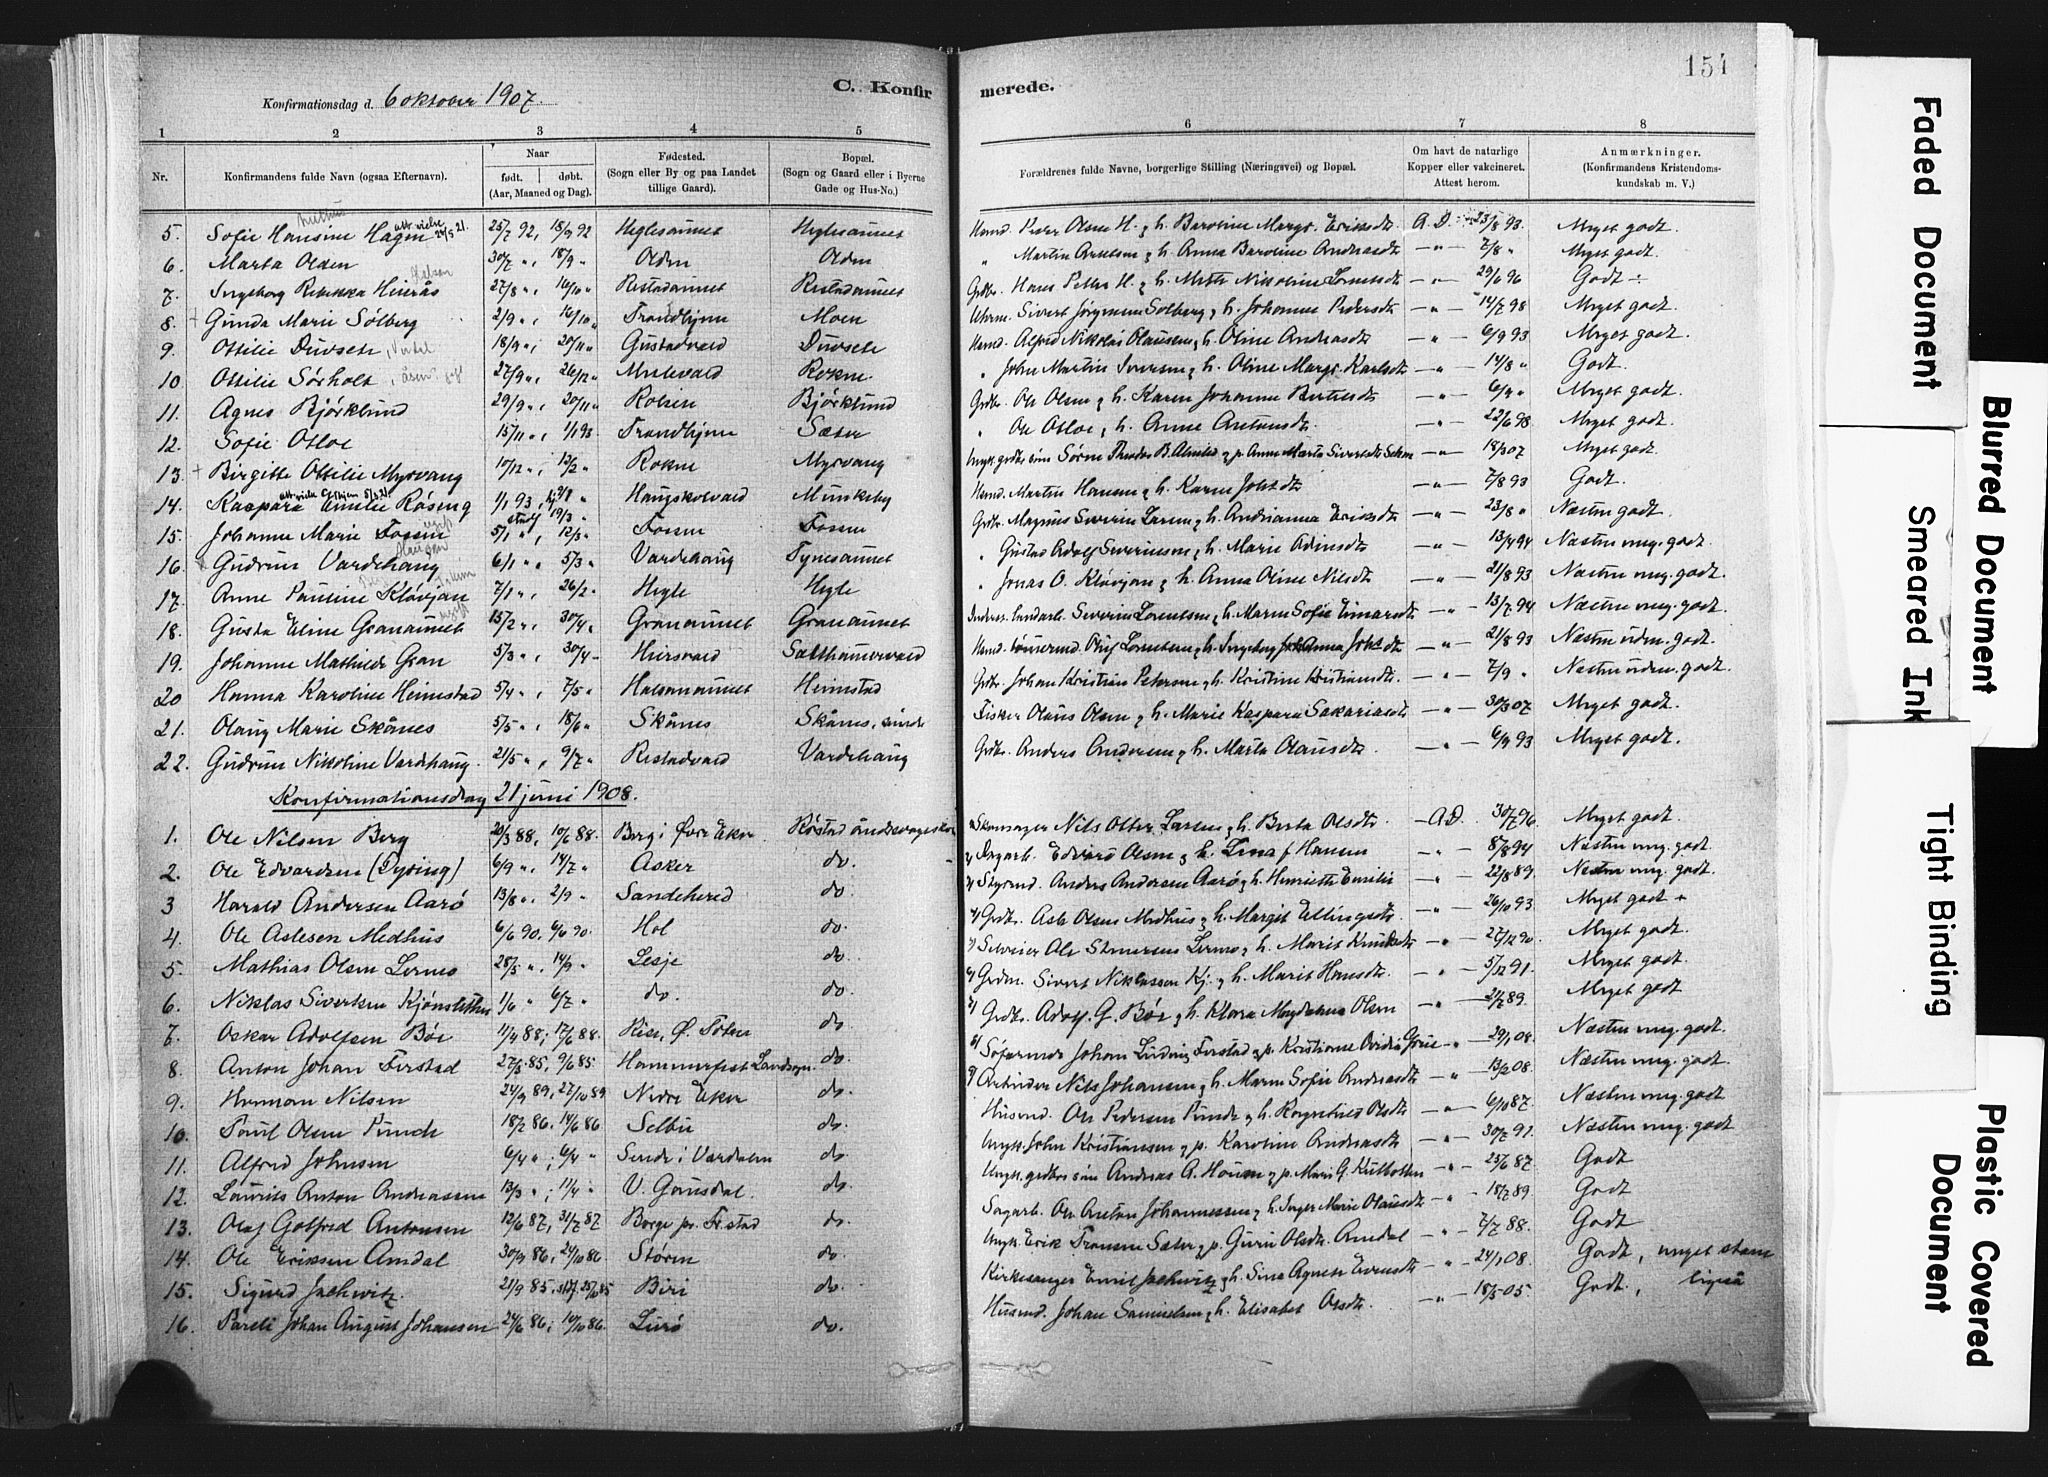 154
C. Konfirmerede.
Konfirmationsdag d. 6 oktober 1907.
1 2 3 4 5 6 7 8
Nr. Konfirmandens fulde Navn (ogsaa Efternavn). Naar født. døbt. (Aar, Maaned og Dag). Fødested. (Sogn eller By og paa Landet tillige Gaard). Bopæl. (Sogn og Gaard eller i Byerne Gade og Hus-No.) Forældrenes fulde Navne, borgerlige Stilling (Næringsvei) og Bopæl. Om havt de naturlige Kopper eller vakcineret. Attest herom. Anmærkninger. (Konfirmandens Kristendomskundskab m. V.)
5. Sofie Hansine Hagen 25/7 92, 18/9 92 Heglesaunet Heglesaunet Husmd. Peder Olsen H. & h. Baroline Margr. Eriksdt. A.D. 23/8 93. Meget godt.
6. Marta Olden 30/7 ", 18/9 " Olden Olden " Martin Arntsen & h. Anna Baroline Andreasdt. —"— 7/8 " Meget godt.
7. Ingeborg Rebekka Heirås 27/8 ", 16/10 " Restadaunet Restadaunet Grdbr. Hans Petter H. & Mette Nikoline Lorentsdt. —"— 29/6 96 Godt ÷
8. Gunda Marie Solberg 2/9 ", 16/10 " Trondhjem Moen Uhrm. Sivert Jørgensen Solberg & h. Johanna Pedersdt. —"— 14/7 98 Meget godt.
9. Ottilie Duvsete 18/9 ", 20/11 " Gustadvald Duvsete Husmd. Alfred Nikolas Olausen & h. Oline Andreasdt. —"— 6/9 93 Meget godt.
10. Ottilie Sørholt 27/9 ", 26/12 " Rokne " John Martin Iversen & h. Oline Margr. Karlsdt. —"— 14/8 " Godt.
11. Agnes Bjørklund 29/9 ", 20/11 " Bjørklund Grdbr. Ole Olsen & h. Karen Johanna —"— 6/9 " Meget godt.
12. Sofie Osloe 15/11 ", 1/1 93. Trondhjem Sæter " Ole Osloe, & h. Anne Antonsdt. —"— 22/6 98 Meget godt.
13. Birgitte Ottilie Myrvang 10/12 ", 12/2 " Rokne Myrvang Ungk. grdbr.søn Sørn Theodor B. Almlid & p. Anne Marta Sivertsdt. —"— 18/3 07 Meget godt.
14. Kaspara Emilie Røseng 1/1 93, Haugskotvald Munkeby Husmd. Martin Hansen & h. Karen Johsdt. —"— 7/8 93 Godt.
15. Johanne Marie Fossen 5/1 ", 12/3 " Fossen Fossen Grdbr. Magnus Severin Larsen & h. Andrianna Eriksdt. —"— 23/8 " Næsten godt.
16. Gudrun Vardehaug 6/1 " 5/3 " Vardehaug Tynesaunet " Gustav Adolf Severinsen & h. Marie Adinsdt. —"— 13/4 94 Næsten meg. godt.
17. Anne Pauline Kløvjan 7/1 ", 26/2 " Hegle Hegle " Jonas O. Kløvjan & h. Anna Oline Nilsdt. —"— 21/8 93 Næsten meg. godt.
18. Gusta Eline Granaunet 15/2 ", 30/4 " Granaunet Granaunet Severin Lorentsen & h. Maren Sofie Einarsdt. —"— 13/7 94 Næsten meg. godt.
19. Johanne Mathilde Gran 5/3 ", 30/4 " Heirsvald Salthamervald Husmd. Oluf Lorentsen & h. Ingeborg Anna Johsdt. —"— 21/8 93 Næsten udm. godt.
20 Hanna Karoline Heimstad 5/4 ", 7/5 " Halsanaunet Heimstad Grdbr. Johan Kristian Petersen & h. Kristine Kristiansdt. —"— 7/9 " Næsten udm. godt.
21. Olaug Marie Skånes 5/5 ", 18/6 " Skånes Skånes, Fisker Olaus Olsen & h. Marie Kaspara Sakariasdt. —"— 30/3 07 Meget godt.
22. Gudrun Nikoline Vardehaug. 21/5 ", 9/7 " Restadvald Vardehaug Grdbr. Anders Andersen & h. Marta Olausdt. —"— 6/9 93 Meget godt.
Konfirmationsdag 21 juni 1908.
1. Ole Nilsen Berg 20/3 88, 10/6 88. Berg i Øvre Eker Røstad åndssvageskole Nils Otter Larsen & h. Berta Olsdt. —A.D. 30/7 96 Meget godt.
2. Ole Edvardsen (Dyring) 6/9 ", 14/7 " Asker do. Dagarb. Edvard Olsen & h. Lena f Hansen —"— 8/8 94 Næsten meg. godt.
3 Harald Andersen Aarø 13/8 ", 2/9 " Sandehered do. Styrmd. Anders Andersen Aarø & h. Henriette Emilie —"— 22/8 89 Næsten meg. godt.
4. Ole Aslesen Medhus 6/6 90, 90. Hol do. Grdbr. Asle Olsen Medhus & h. Margit Ellingsdt. —"— 26/10 93. Meget godt +
5. Mathias Olsen Lernes 28/5 ", 14/9 " Lesje do. Ole Lernes & h. Marit Knudsdt. —"— 27/12 90. Meget godt.
6. Niklas Sivertsen 1/6 " 6/7 " do. do. Grdm. Sivert Niklassen Kj. & h. Marit Hansdt. —"— 5/12 91. Meget godt.
7. Oskar Adolfsen Bøe 11/4 88, 17/6 88. Ø. Toten do. Grdbr. Adolf G. Bøe & h. Klara Magdalena Olsen —"— 89. Meget godt
8. Anton Johan Finstad 27/5 85, 9/6 85 Hammerfest Landsogn. do. Johan Ludvig & p. Kristiane Ovidia —"— 29/1 08. Næsten meg. godt.
9. Herman Nilsen 24/9 89, 27/10 89 Nedre Eker do. Arbeider Nils Johansen & h. Maren Sofie Andreasdt. —"— 13/2 08. Næsten meg. godt.
10. Olsen 18/2 86, 14/6 86 Selbu do. Husmd. Ole Pedersen & h. Olsdt. —"— 6/10 87. Næsten meg. godt
11. Alfred Johnsen 6/4 ", 6/4 " Sende i Værdalen do. Ungk. John Kristiansen & p. Karoline Andreasdt. —"— 30/7 91. Næsten meg. godt
12. Laurits Anton Andreassen 13/3 ", 11/4 " V. Gausdal. do. Ungk. grdbr.søn Andreas A. & p. Mari G. Kulbotten —"— 25/6 87. Godt
13. Olaf Gotfred Antonsen 12/6 87, 31/7 87 Borge pr. Fr.stad do. Sagarb. Ole Anton Johannessen & h. Inger Marie Olausdt. —"— 18/7 89. Godt
14. Ole Eriksen Amdal 30/9 86, 24/10 86 Støren do. Ungk. Erik Sæter & p. Guru Olsdt. Amdal —"— 7/7 88. Godt
15. Sigurd Jachwitz 21/9 85, Biri do. Kirkesanger Emil Jachwitz & h. Sina Agnete Evensdt. —"— 24/1 08. Godt, meget stam
16. Pareli Johan August Johansen 24/6 86, 10/10 86. Lurø do. Husmd. Johan Samuelsen & h. Elisabet Olsdt. —"— 18/5 05. Godt,
Faded Document
Blurred Document
Smeared Ink
Tight Binding
Plastic Covered Document